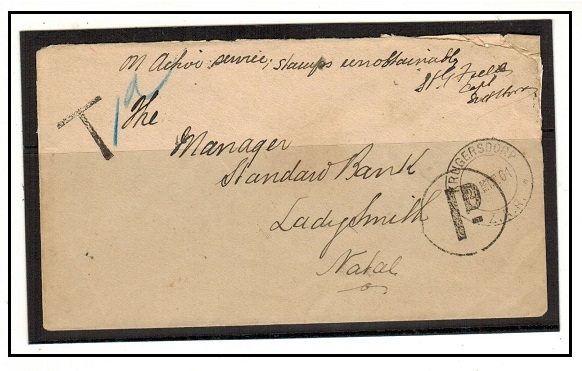 on Active service, stamps unobtainable
Capt
T
1d
The
Manager
Standard Bank
Ladysmith
Natal
KRUGERSDORP
01
Z.A.R.
1D